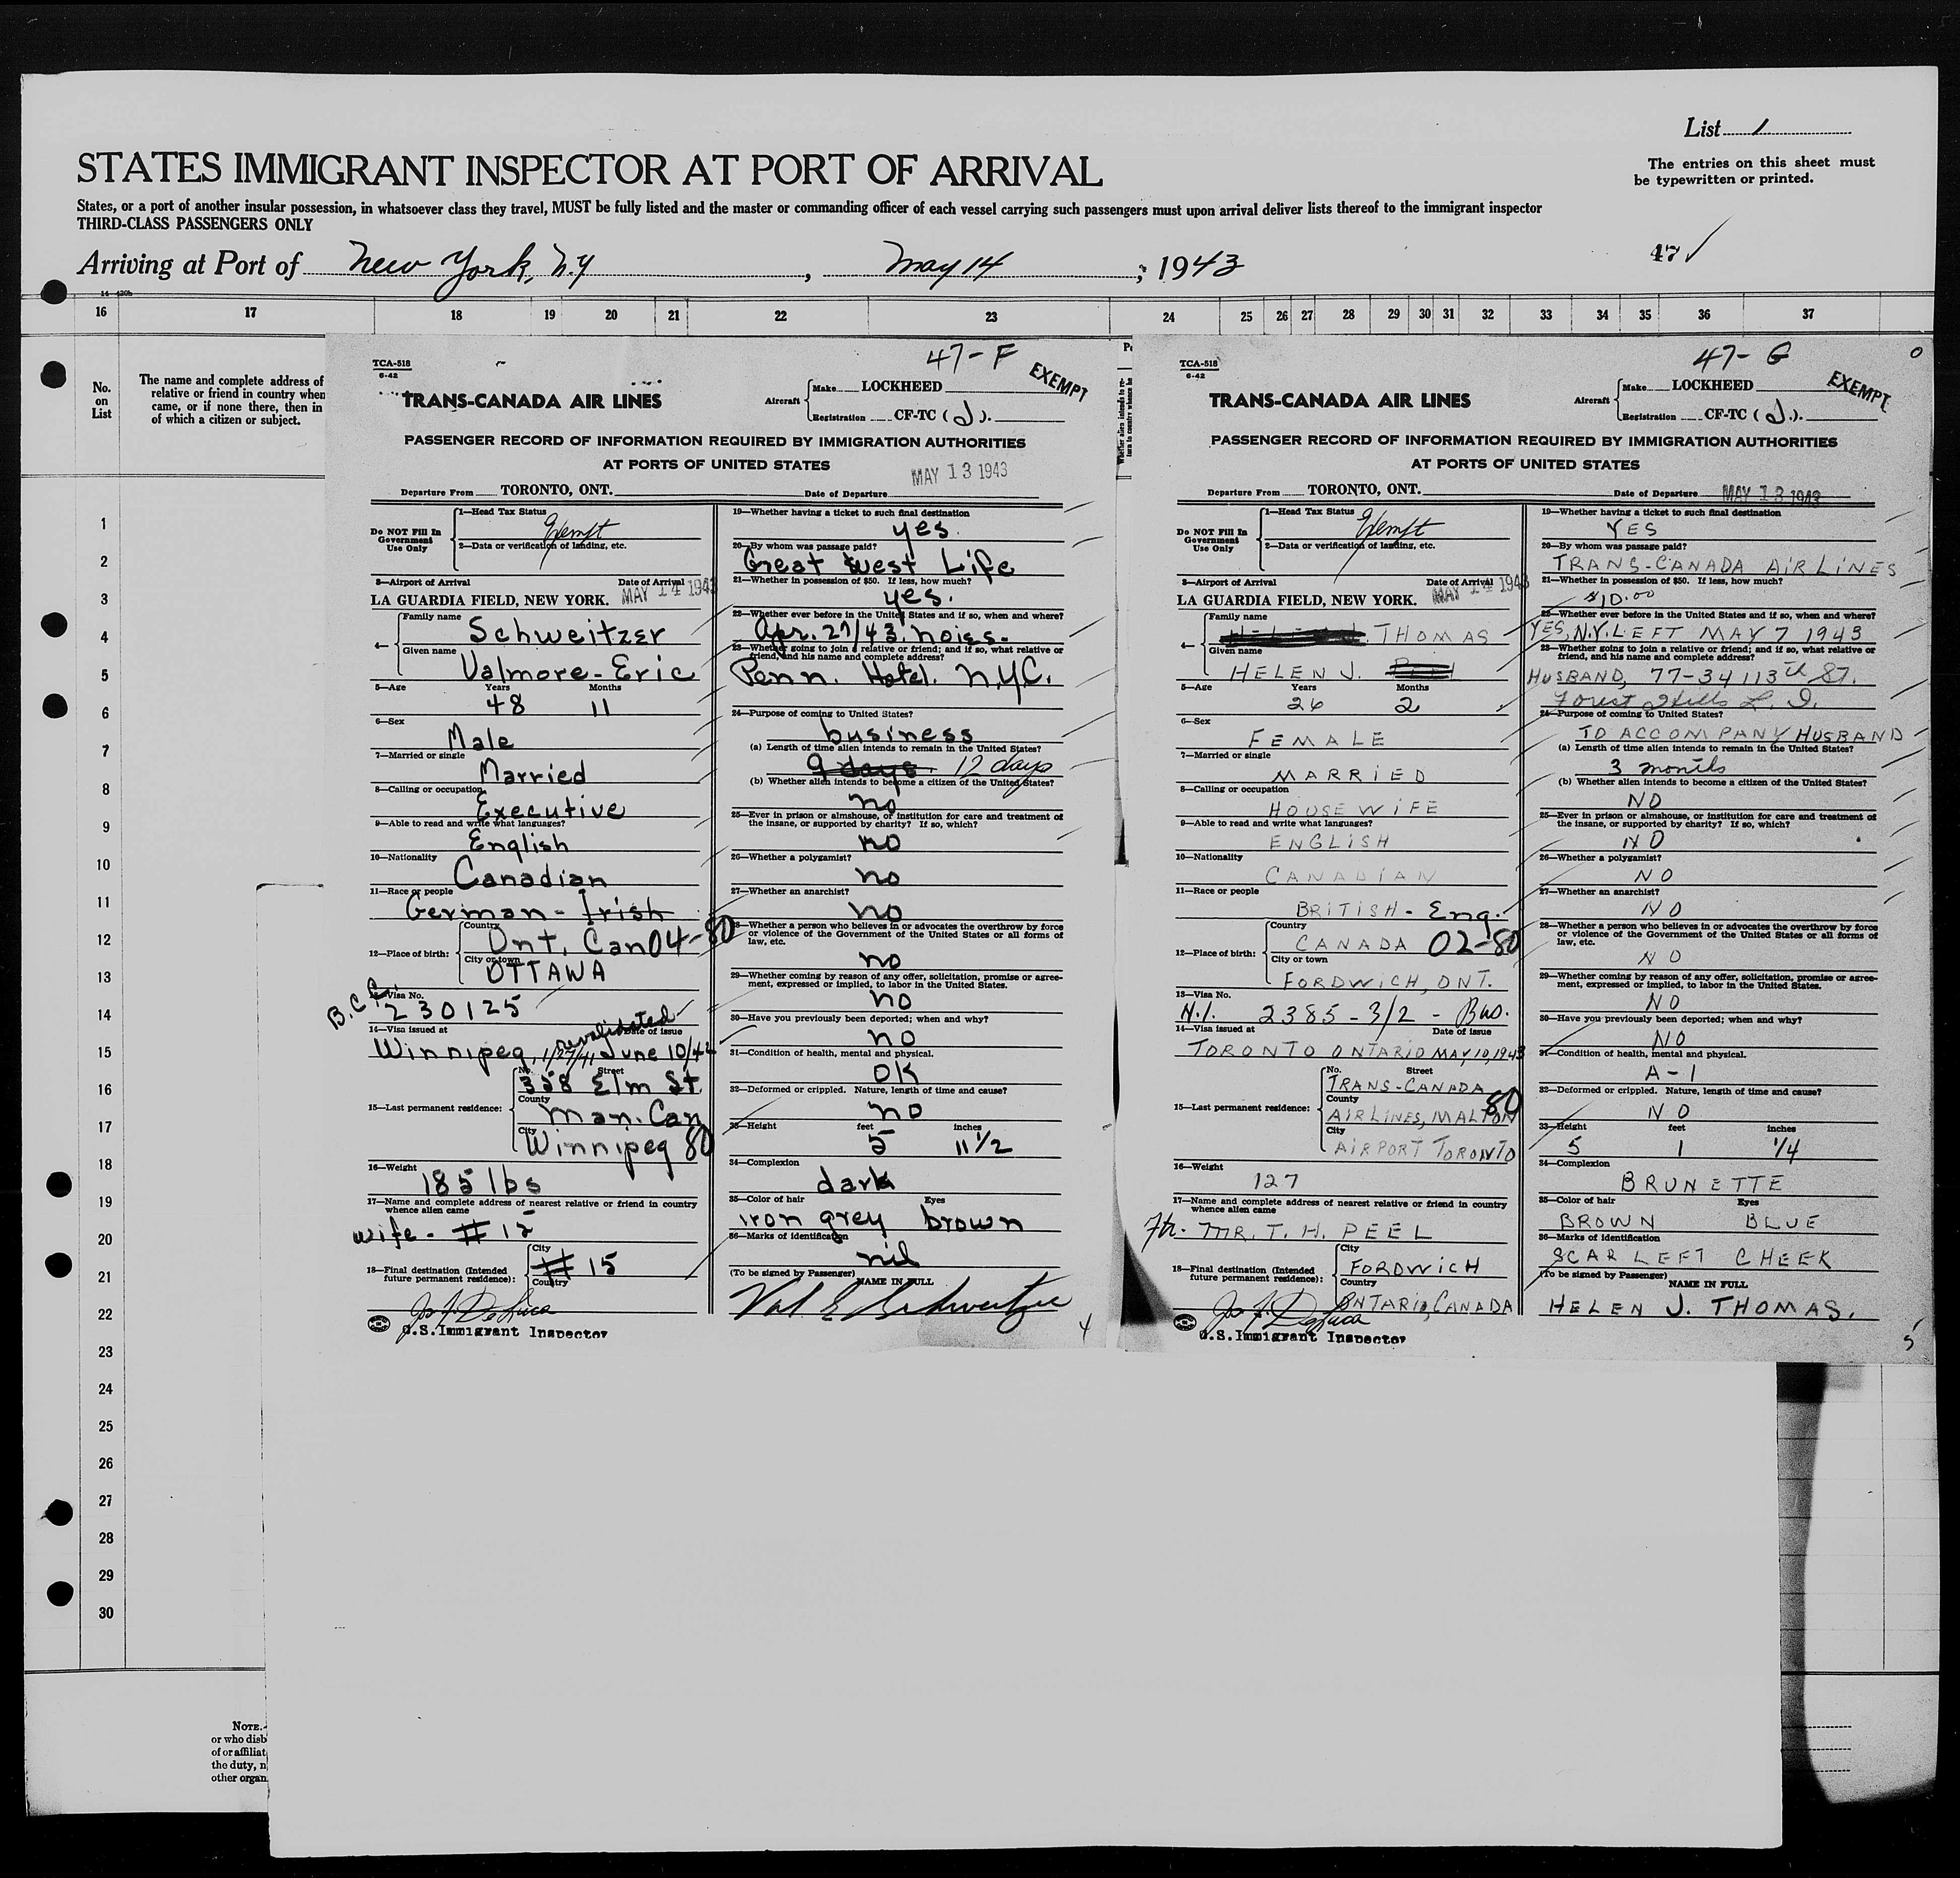 List 1
STATES IMMIGRANT INSPECTOR AT PORT OF ARRIVAL
The entries on this sheet must
be typewritten or printed.
States, or a port of another insular possession, in whatsoever class they travel, MUST be fully listed and the master or commanding officer of each vessel carrying such passengers must upon arrival deliver lists thereof to the immigrant inspector
THIRD-CLASS PASSENGERS ONLY
Arriving at Port of New York, N.Y, May 14, 1943
47 ✓
16 17 18 19 20 21 22 23 24 25 26 27 28 29 30 31 32 33 34 35 36 37
No.
on
List
The name and complete address of
relative or friend in country when
came, or if none there, then in
of which a citizen or subject.
1
2
3
4
5
6
7
8
9
10
11
12
13
14
15
16
17
18
19
20
21
22
23
24
25
26
27
28
29
30
NOTE.-
or who disb
of or affiliat
the duty, n
other organ
TCA-518
6-42
47-F
EXEMPT
TRANS-CANADA AIR LINES
Aircraft
Make LOCKHEED
Registration CF-TC (J).
PASSENGER RECORD OF INFORMATION REQUIRED BY IMMIGRATION AUTHORITIES
AT PORTS OF UNITED STATES
MAY 13 1943
Departure From TORONTO, ONT. Date of Departure
Do NOT Fill In
Government
Use Only
1—Head Tax Status
Exempt
2—Data or verification of landing, etc.
3—Airport of Arrival Date of Arrival
LA GUARDIA FIELD, NEW YORK. MAY 14 1943
4—
Family name
Schweitzer
Given name
Valmore-Eric
5—Age Years Months
48 11
6—Sex
Male
7—Married or single
Married
8—Calling or occupation
Executive
9—Able to read and write what languages?
English
10—Nationality
Canadian
11—Race or people
German - Irish
12—Place of birth:
Country
Ont. Can 04-80
City or town
OTTAWA
B.C.C.
13—Visa No.
230125
revalidated
14—Visa issued at Date of issue
Winnipeg, 1/27/41 June 10/42
15—Last permanent residence:
No. Street
358 Elm St.
County
Man. Can
City
Winnipeg 80
16—Weight
185 lbs
17—Name and complete address of nearest relative or friend in country
whence alien came
wife - # 15
18—Final destination (Intended
future permanent residence):
City
# 15
Country
U.S. Immigrant Inspector
19—Whether having a ticket to such final destination
yes.
20—By whom was passage paid?
Great West Life
21—Whether in possession of $50. If less, how much?
yes.
22—Whether ever before in the United States and if so, when and where?
Apr. 27/43.
23—Whether going to join a relative or friend; and if so, what relative or
friend, and his name and complete address?
Penn. Hotel. N.Y.C.
24—Purpose of coming to United States?
business
(a) Length of time alien intends to remain in the United States?
9 days. 12 days
(b) Whether alien intends to become a citizen of the United States?
no
25—Ever in prison or almshouse, or institution for care and treatment of
the insane, or supported by charity? If so, which?
no
26—Whether a polygamist?
no
27—Whether an anarchist?
no
28—Whether a person who believes in or advocates the overthrow by force
or violence of the Government of the United States or all forms of
law, etc.
no
29—Whether coming by reason of any offer, solicitation, promise or agree-
ment, expressed or implied, to labor in the United States.
no
30—Have you previously been deported; when and why?
no
31—Condition of health, mental and physical.
OK
32—Deformed or crippled. Nature, length of time and cause?
no
33—Height feet inches
5 11 1/2
34—Complexion
dark
35—Color of hair Eyes
iron grey brown
36—Marks of identification
nil
(To be signed by Passenger) NAME IN FULL
Val E Schweitzer
4
TCA-518
6-42
47-G
0
EXEMPT
TRANS-CANADA AIR LINES
Aircraft
Make LOCKHEED
Registration CF-TC (J.).
PASSENGER RECORD OF INFORMATION REQUIRED BY IMMIGRATION AUTHORITIES
AT PORTS OF UNITED STATES
Departure From TORONTO, ONT. Date of Departure MAY 13 1943
Do NOT Fill In
Government
Use Only
1—Head Tax Status
Exempt
2—Data or verification of landing, etc.
3—Airport of Arrival Date of Arrival
LA GUARDIA FIELD, NEW YORK. MAY 14 1943
4—
Family name
THOMAS
Given name
HELEN J.
5—Age Years Months
26 2
6—Sex
FEMALE
7—Married or single
MARRIED
8—Calling or occupation
HOUSEWIFE
9—Able to read and write what languages?
ENGLISH
10—Nationality
CANADIAN
11—Race or people
BRITISH - Eng.
12—Place of birth:
Country
CANADA 02-80
City or town
FORDWICH, ONT.
13—Visa No.
N.I. 2385 - 3/2 - Bus.
14—Visa issued at Date of issue
TORONTO ONTARIO MAY, 10, 1943
15—Last permanent residence:
No. Street
TRANS-CANADA
County
AIRLINES, MALTON 80
City
AIRPORT TORONTO
16—Weight
127
17—Name and complete address of nearest relative or friend in country
whence alien came
Fr. MR. T. H. PEEL
18—Final destination (Intended
future permanent residence):
City
FORDWICH
Country
ONTARIO, CANADA
U.S. Immigrant Inspector
19—Whether having a ticket to such final destination
YES
20—By whom was passage paid?
TRANS-CANADA AIR LINES
21—Whether in possession of $50. If less, how much?
$10.00
22—Whether ever before in the United States and if so, when and where?
YES, N.Y. LEFT MAY 7 1943
23—Whether going to join a relative or friend; and if so, what relative or
friend, and his name and complete address?
HUSBAND, 77-34 113th ST.
Forest Hills L. I.
24—Purpose of coming to United States?
TO ACCOMPANY HUSBAND
(a) Length of time alien intends to remain in the United States?
3 months
(b) Whether alien intends to become a citizen of the United States?
NO
25—Ever in prison or almshouse, or institution for care and treatment of
the insane, or supported by charity? If so, which?
NO
26—Whether a polygamist?
NO
27—Whether an anarchist?
NO
28—Whether a person who believes in or advocates the overthrow by force
or violence of the Government of the United States or all forms of
law, etc.
NO
29—Whether coming by reason of any offer, solicitation, promise or agree-
ment, expressed or implied, to labor in the United States.
NO
30—Have you previously been deported; when and why?
NO
31—Condition of health, mental and physical.
A-1
32—Deformed or crippled. Nature, length of time and cause?
NO
33—Height feet inches
5 1 1/4
34—Complexion
BRUNETTE
35—Color of hair Eyes
BROWN BLUE
36—Marks of identification
SCAR LEFT CHEEK
(To be signed by Passenger) NAME IN FULL
HELEN J. THOMAS.
5